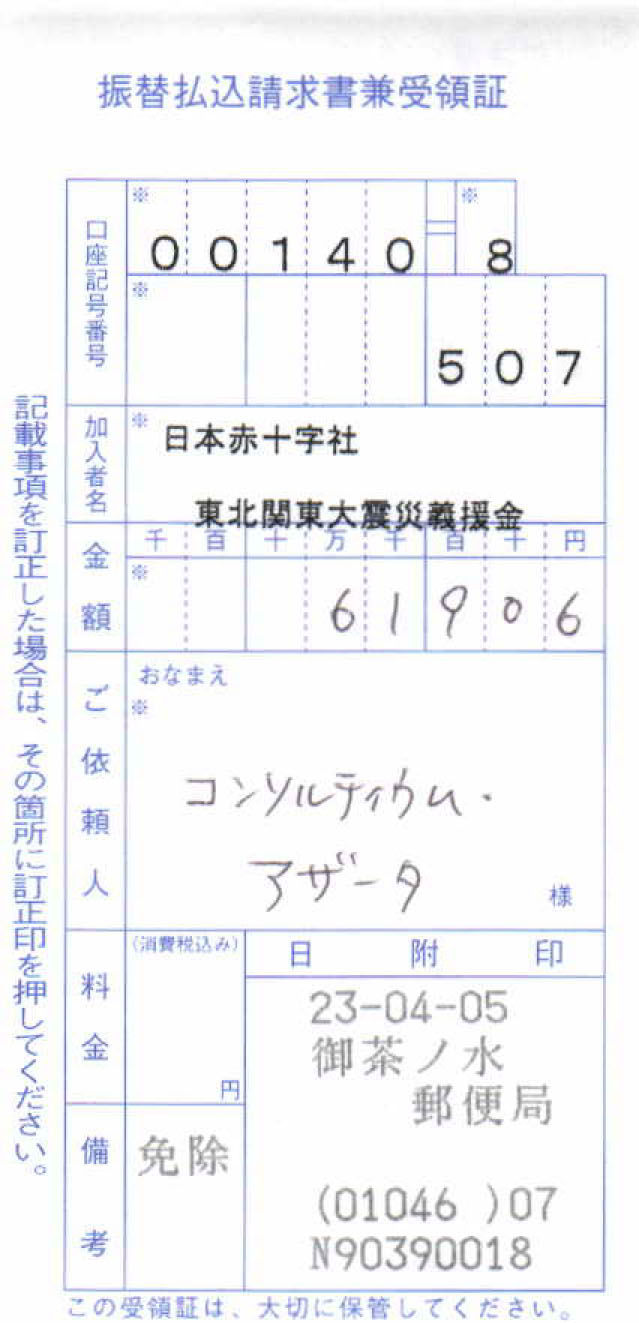 振替払込請求書兼受領証
口座記号番号
※ ※
00140=8
※
507
加入者名
※
日本赤十字社
東北関東大震災義援金
金額
千百十万千百十円
※
61906
ご依頼人
おなまえ
※
コンソルティウム・
アザータ
様
料金
(消費税込み)
円
日附印
23-04-05
御茶ノ水
郵便局
(01046 )07
N90390018
備考
免除
記載事項を訂正した場合は、その箇所に訂正印を押してください。
この受領証は、大切に保管してください。